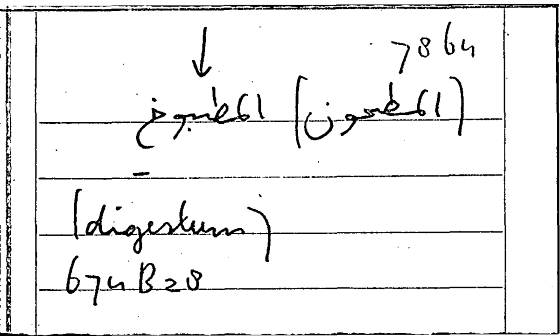 ↓ 786u
المطبوخ (المطحون)
(digestum)
674B28